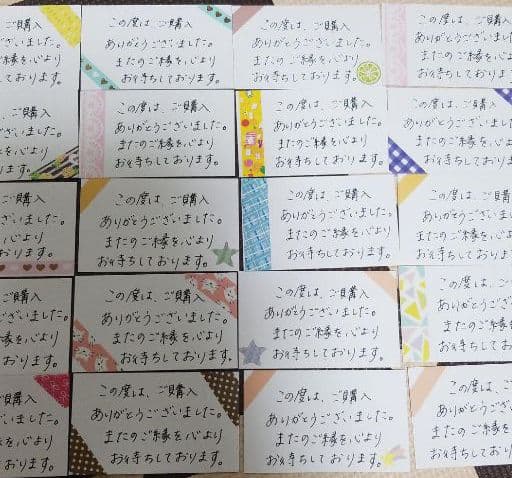 ご購入
ございました。
ご縁を心より
しております。
この度は、ご購入
ありがとうございました。
またのご縁を心より
お待ちしております。
この度は、ご購入
ありがとうございました。
またのご縁を心より
お待ちしております。
この度は、ご購入
ありがとうございました。
またのご縁を心より
お待ちしております。
ご購入
ございました。
を心より
おります。
この度は、ご購入
ありがとうございました。
またのご縁を心より
お待ちしております。
この度は、ご購入
ありがとうございました。
またのご縁を心より
お待ちしております。
この度は、ご購入
ありがとうございました。
またのご縁を心より
お待ちしております。
ご購入
いました。
心より
おります。
この度は、ご購入
ありがとうございました。
またのご縁を心より
お待ちしております。
この度は、ご購入
ありがとうございました。
またのご縁を心より
お待ちしております。
この度は、ご購
ありがとうござい
またのご縁を
お待ちして
ご購入
いました。
を心より
ります。
この度は、ご購入
ありがとうございました。
またのご縁を心より
お待ちしております。
この度は、ご購入
ありがとうございました。
またのご縁を心より
お待ちしております。
この度は、
ありがとうござい
またのご縁を
お待ちして
ご購入
いました。
を心より
おります。
この度は、ご購入
ありがとうございました。
またのご縁を心より
お待ちしております。
この度は、ご購入
ありがとうございました。
またのご縁を心より
お待ちしております。
この度は、
ありがとうござ
またのご縁
お待ちして